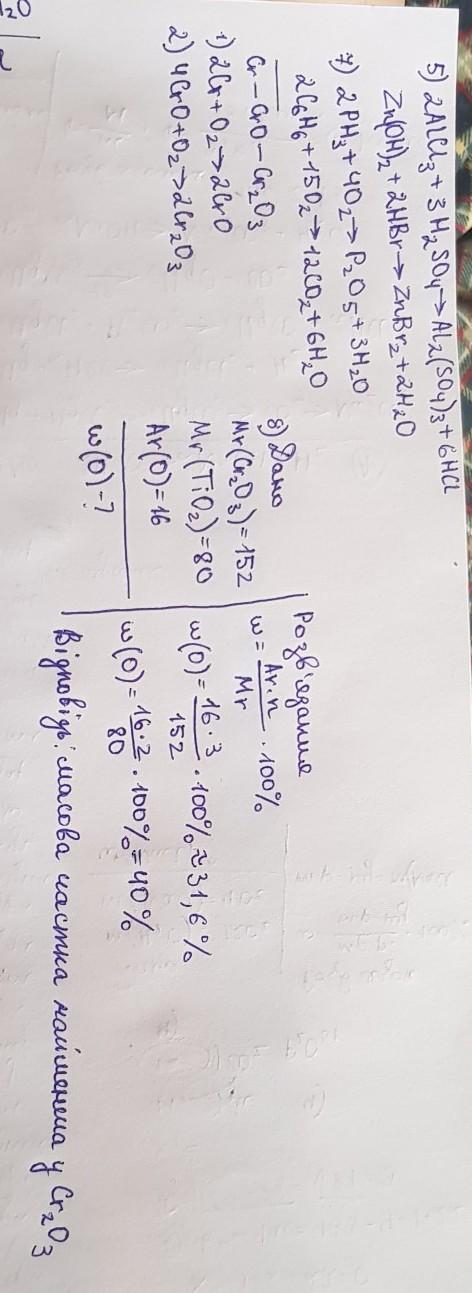 5) 2AlCl₃ + 3H₂SO₄ → Al₂(SO₄)₃ + 6HCl
Zn(OH)₂ + 2HBr → ZnBr₂ + 2H₂O
7) 2PH₃ + 4O₂ → P₂O₅ + 3H₂O
2C₆H₆ + 15O₂ → 12CO₂ + 6H₂O
Cr – CrO – Cr₂O₃
1) 2Cr + O₂ → 2CrO
2) 4CrO + O₂ → 2Cr₂O₃
8) Дано
Mr(Cr₂O₃) = 152
Mr(TiO₂) = 80
Ar(O) = 16
w(O) - ?
Розв'язання
w = Ar·n / Mr · 100%
w(O) = 16·3 / 152 · 100% ≈ 31,6%
w(O) = 16·2 / 80 · 100% = 40%
Відповідь: масова частка найменша у Cr₂O₃